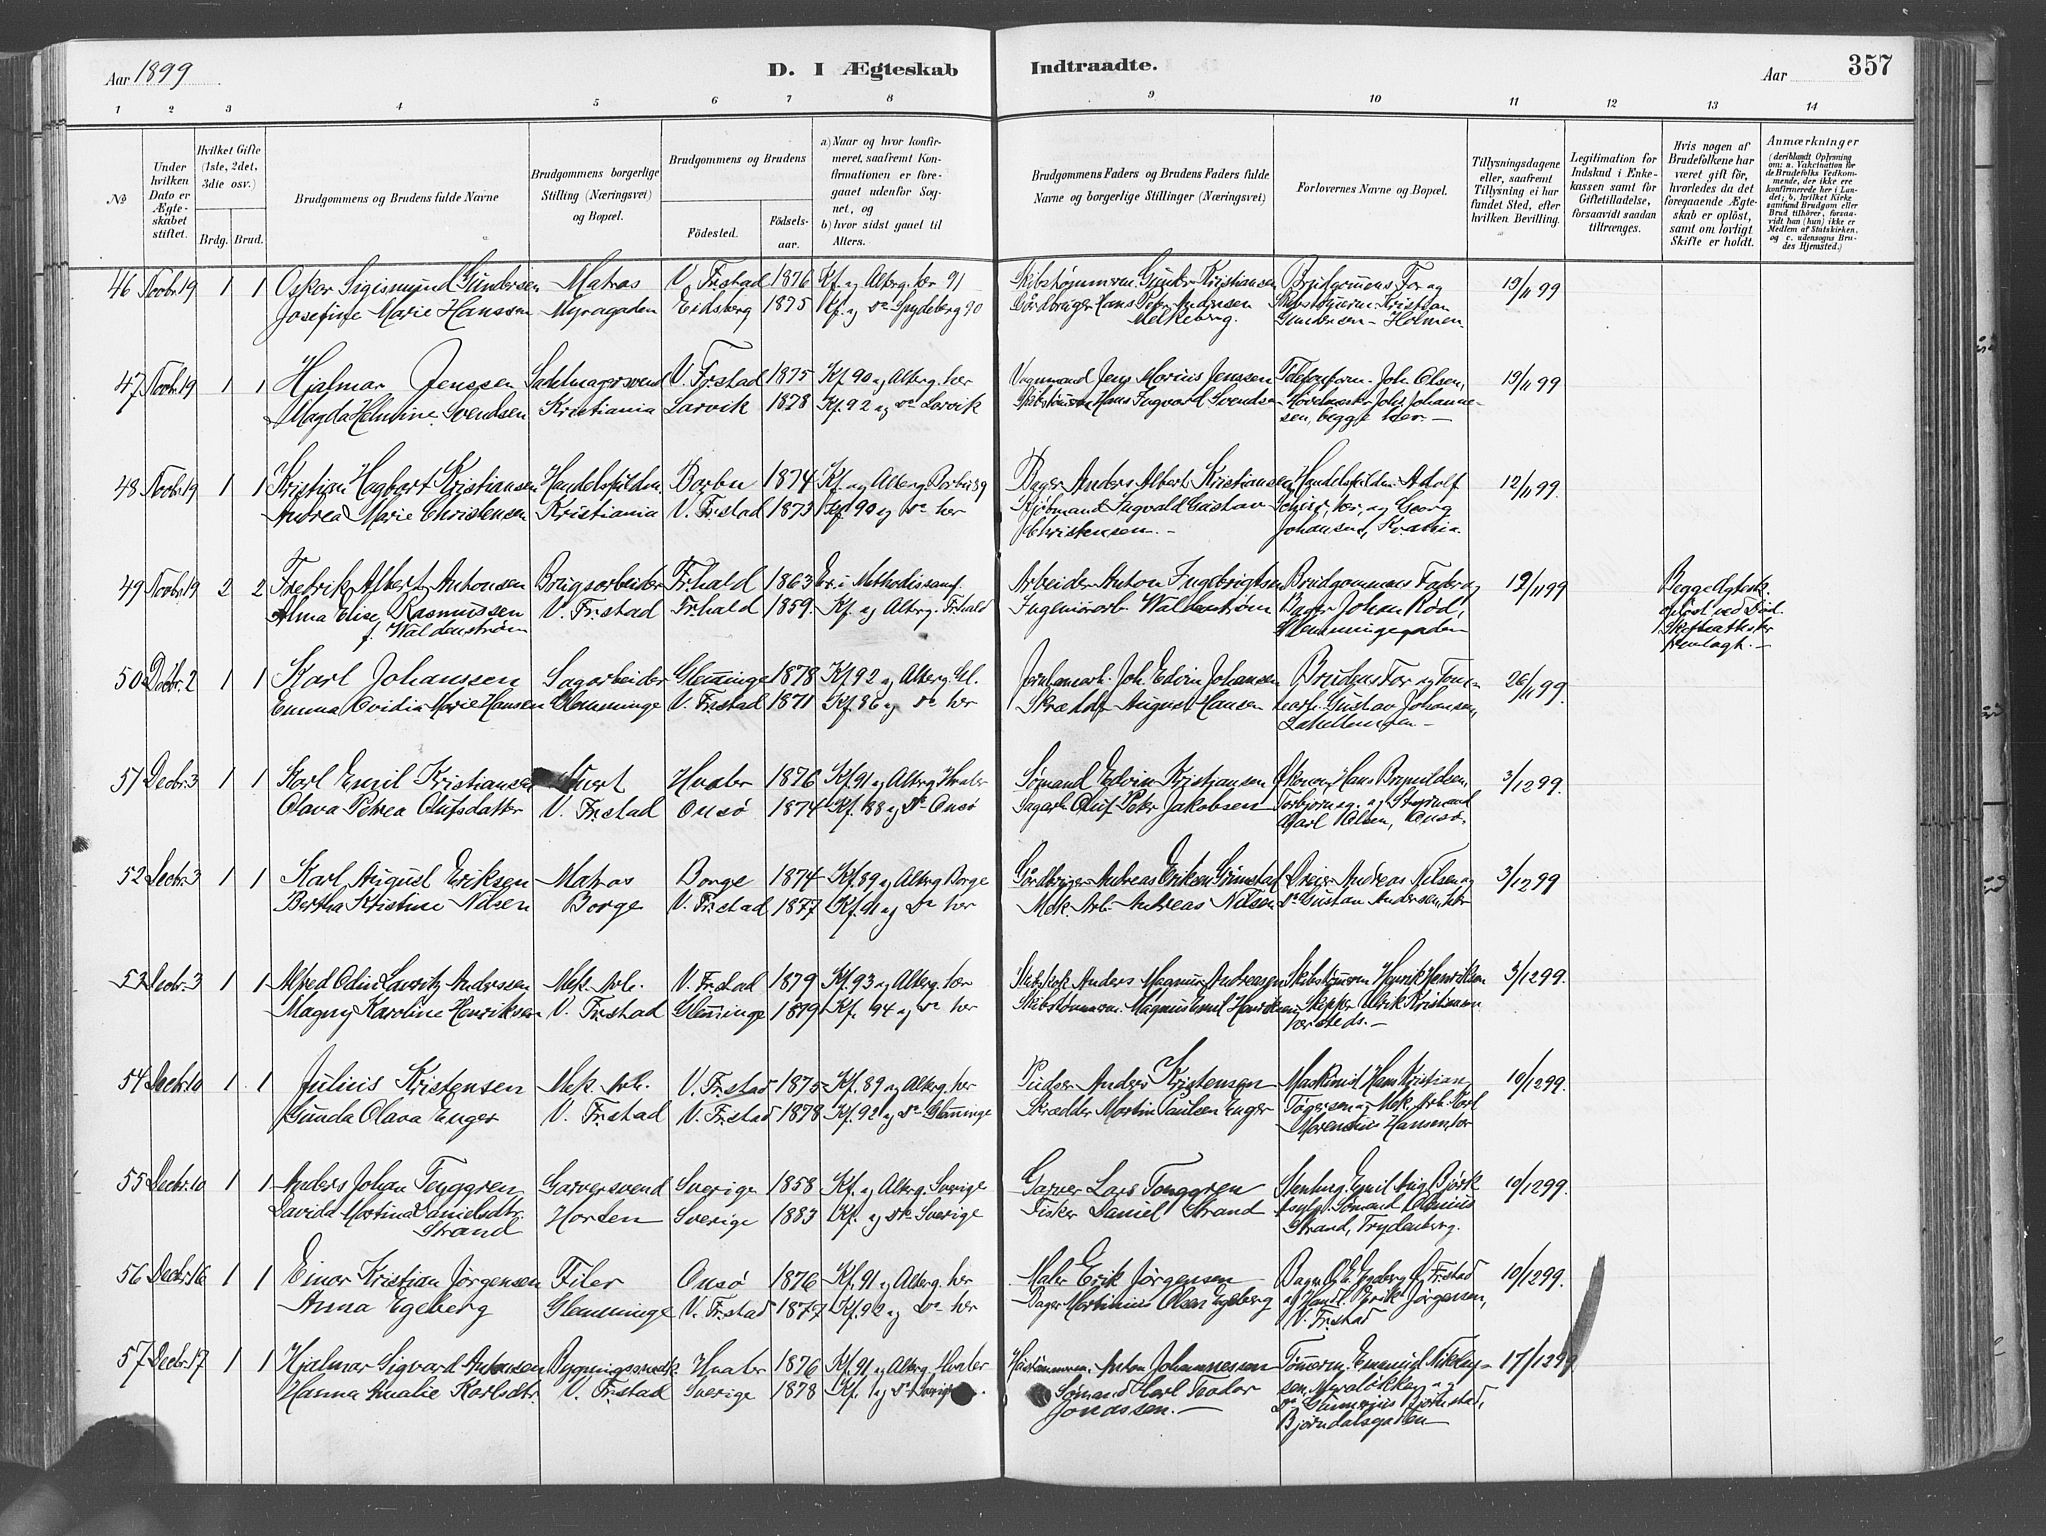 Aar 1899
D. I Ægteskab Indtraadte.
Aar
357
1 2 3 4 5 6 7 8 9 10 11 12 13 14
No
Under hvilken Dato er Ægteskabet stiftet.
Hvilket Gifte (1ste, 2det, 3die osv.)
Brdg. Brud.
Brudgommens og Brudens fulde Navne
Brudgommens borgerlige Stilling (Næringsvei) og Bopæl.
Brudgommens og Brudens
Födested.
Födselsaar.
a) Naar og hvor konfirmeret, saafremt Konfirmationen er foregaaet udenfor Sognet, og
b) hvor sidst gaaet til Alters.
Brudgommens Faders og Brudens Faders fulde Navne og borgerlige Stillinger (Næringsvei)
Forlovernes Navne og Bopæl.
Tillysningsdagene eller, saafremt Tillysning ei har fundet Sted, efter hvilken Bevilling.
Legitimation for Indskud i Enkekassen samt for Giftetilladelse, forsaavidt saadan tiltrænges.
Hvis nogen af Brudefolkene har været gift før, hvorledes da det foregaaende Ægteskab er oplöst, samt om lovligt Skifte er holdt.
Anmærkninger
(deriblandt Oplysning om: a. Vakcination for de Brudefolks Vedkommende, der ikke ere konfirmerede her i Landet; b. hvilket Kirkesamfund Brudgom eller Brud tilhörer, forsaavidt han (hun) ikke er Medlem af Statskirken, og c. udensogns Brudes Hjemsted.)
46 Novbr. 19 1 1 Oskar Sigismund Gundersen Matros V. Fr.stad 1876 Kf. og Alterg. her 91 Skibstømmerm. Gunder Kristiansen Brudgommens Far og 19/11 99
Josefine Marie Hanssen Myragaden Eidsberg 1875 Kf. og do Spydeberg 90 Gårdbruger Hans Peter Andersen Skibstømerm. Kristian
Melkeberg. Gundersen - Holmen
47 Novbr. 19 1 1 Hjalmar Jenssen Sadelmagersvend V. Fr.stad 1875 Kf. 90 og Alterg. her Vognmand Jens Morius Jenssen Telefonform. Joh. Olsen, 19/11 99
Magda Helmine Svendsen Kristiania Larvik 1878 Kf. 92 og do Larvik Skibstømrm Hans Ingvart Svendsen Johs. Johanne-
sen, begge her.
48 Novbr. 19 1 1 Kristian Hagbart Kristiansen Handelsfuldm. Borbu 1874 Kf. og Alterg. Borbu 89 Bager Anders Albert Kristiansen Handelsfuldm. Adolf 12/11 99.
Andrea Marie Christensen Kristiania V. Fr.stad 1873 Kf. 90 og do her Kjøbmand Ingvald Gustav her, og Georg
Christensen. Johansen, Kr.ania
49 Novbr. 19 2 2 Fredrik Albert Antonsen Brugsarbeider Fr.hald 1863 Er i Methodistsamf. Arbeider Anton Ingebrigtsen Brudgommens Fader og 19/11 99 Begge Ægtesk.
Alma Elise Rasmussen V. Fr.stad Fr.hald 1859. Kf. og Alterg. Fr.hald Waldenstrøm Bager Johan Rød, opløst ved Død.
f. Waldenstrøm Glemmingegaden Skifteattester
fremlagt.
50 Decbr. 2 1 1 Karl Johanssen Sagarbeider Glemminge 1878 Kf. 92 og Alterg. Gl. Jernbanearb. Joh. Edvin Johansen Brudens Far og Tom- 26/11 99.
Emma Ovidia Marie Hansen Glemminge V. Fr.stad 1871 Kf. 86 og do her Skrædder August Hansen tearb. Gustav Johansen,
51 Decbr. 3 1 1 Karl Emil Kristiansen Stuert Hvaler 1876 Kf. 91 og Alterg. Hvaler Sømand Edvin Kristiansen Hans Brynildsen, 3/12 99.
Olava Petrea Olufsdatter V. Fr.stad Onsø 1874 Kf. 88 og do Onsø Sagarb. Oluf Peter Jakobsen Torbjørnsg. og Styrmand
Karl Nilsen, Onsø.
52 Decbr. 3 1 1 Karl August Eriksen Matros Borge 1874 Kf. 89 og Alterg. Borge Gårdbruger Andreas Eriksen Grimstad Dreier Andreas Nilsen og 3/12 99
Bertha Kristine Nilsen Borge V. Fr.stad 1877 Kf. 91 og do her Mek. Arb. Andreas Nilsen do Gustav Andersen, her
53 Decbr. 3 1 1 Alfred Odin Lauritz Andressen Mek. Arb. V. Fr.stad 1879 Kf. 93 og Alterg. her Anders Magnus Andreassen Skibstømrm Henrik Henriksen 3/12 99.
Magny Karoline Henriksen V. Fr.stad Glemminge 1879 Kf. 94 og do her Skibstømmerm. Magnus Emil Henriksen Skipper Ulrik Kristiansen
her steds.
54 Decbr. 10 1 1 Julius Kristensen Mek. Arb. V. Fr.stad 1875 Kf. 89 og Alterg. her Pudser Anders Kristensen Maskinist Hans Kristian 10/12 99.
Gunda Olava Enger V. Fr.stad V. Fr.stad 1878 Kf. 92 og do Glemminge Skrædder Martin Paulsen Enger Tøgersen og Mek. Arb. Karl
Morensius Hansen, her
55 Decbr. 10 1 1 Anders Johan Tenggren Garversvend Sverige 1858 Kf. og Alterg. Sverige Garver Lars Tenggren Stenhug. Emil Aug. Bjørk 10/12 99.
Davida Mortina Danielsdtr. Horten Sverige 1883 Kf. og do Sverige Fisker Daniel Strand Sømand
Strand Strand, Trydenberg.
56 Decbr. 16 1 1 Einar Kristian Jørgensen Filer Onsø 1876 Kf. 91 og Alterg. her Maler Erik Jørgensen Bager O. E. Egeberg, Fr.stad 10/12 99.
Anna Egeberg Glemminge V. Fr.stad 1877 Kf. 92 og do her Bager Martinius Olsen Egeberg og Handl. Erik Jørgensen,
V. Fr.stad
57 Decbr. 17 1 1 Hjalmar Sigvard Antonsen Bygningssnedk. Hvaler 1876 Kf. 91 og Alterg. Hvaler Anton Johannessen Tømerm. Emanuel Nikolay- 17/12 99
Hanna Amalie Karlsdtr. V. Fr.stad Sverige 1878 Kf. og do Sverige. Sømand Karl Teodor sen, Myraløkken og
Jonassen. do Gunerius Bjørnstad,
Bjørndalsgaden